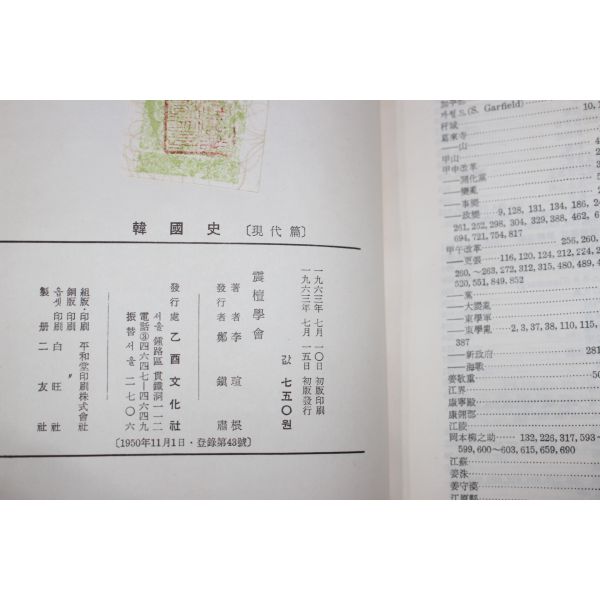 韓國史〔現代篇〕
一九六三年 七月 一〇日 初版印刷
一九六三年 七月 一五日 初版發行
값 七五〇원
震檀學會
著者 李瑄根
發行者 鄭鎭肅
發行處 乙酉文化社
서울 鍾路區 貫鐵洞 一一二
電話③四六四七—四六四九
振替서울 二七〇六
組版·印刷 平和堂印刷株式會社
銅版印刷 〃
옵셋印刷 白旺社
製册 二友社
〔1950年11月1日·登錄第43號〕
카필드(S. Garfield)
柯城
葛來寺
—山
甲山
甲申改革
—開化黨
—變亂
—事變
—政變 9, 128, 131, 134, 186, 24
251, 252, 298, 304, 329, 388, 462, 61
694, 721, 754, 817
甲午改革 256, 260,
—更張 116, 120, 124, 212, 224, 2
260, ～263, 272, 312, 315, 480, 489, 4
520, 551, 849, 852
—黨
—大變亂
—東學軍
—東學亂 2, 3, 37, 38, 110, 115,
387
—新政府 281
—海戰
姜敬重 50
江界
康寧殿
康翎郡
江陵
岡本柳之助 132, 226, 317, 593～
599, 600～603, 615, 659, 690
江蘇
姜洙
姜守漢
江原縣